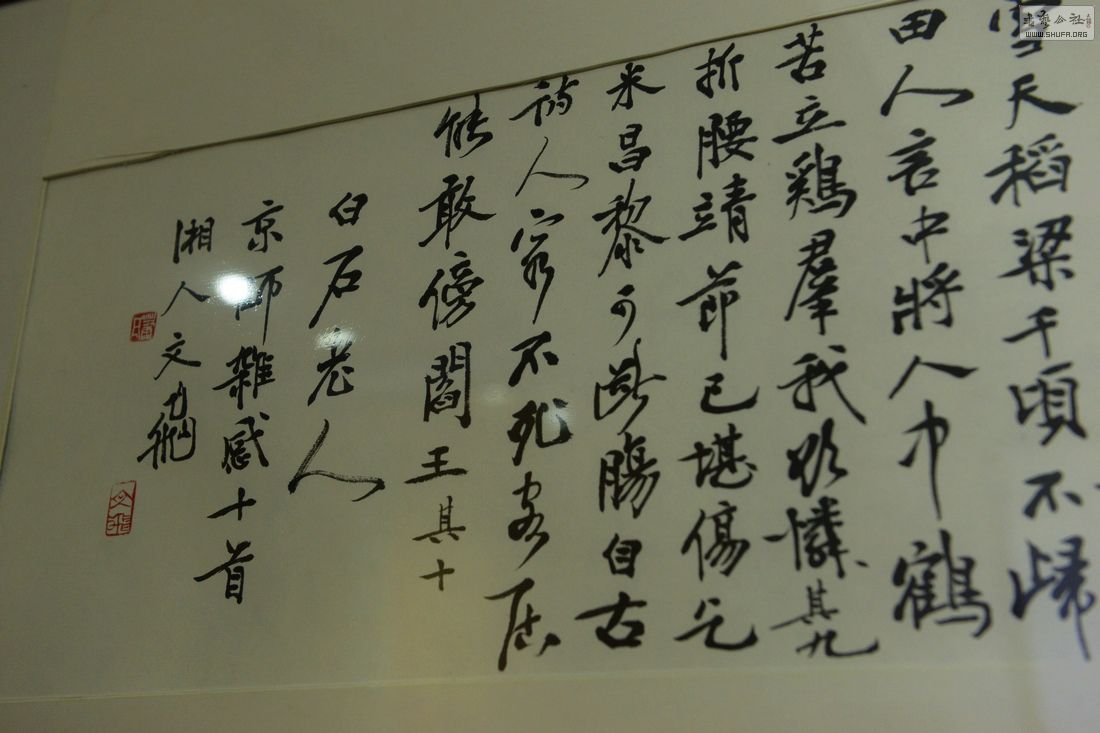 雪天稻粱千頃不歸
田人言中將人巾鶴
苦立鷄羣我欲憐其九
折腰靖節已堪傷乞
米昌黎可斷腸自古
詩人窮不死窮居
能敢傍閻王其十
白石老人
京師雜感十首
湘人文
書法公社
WWW.SHUFA.ORG